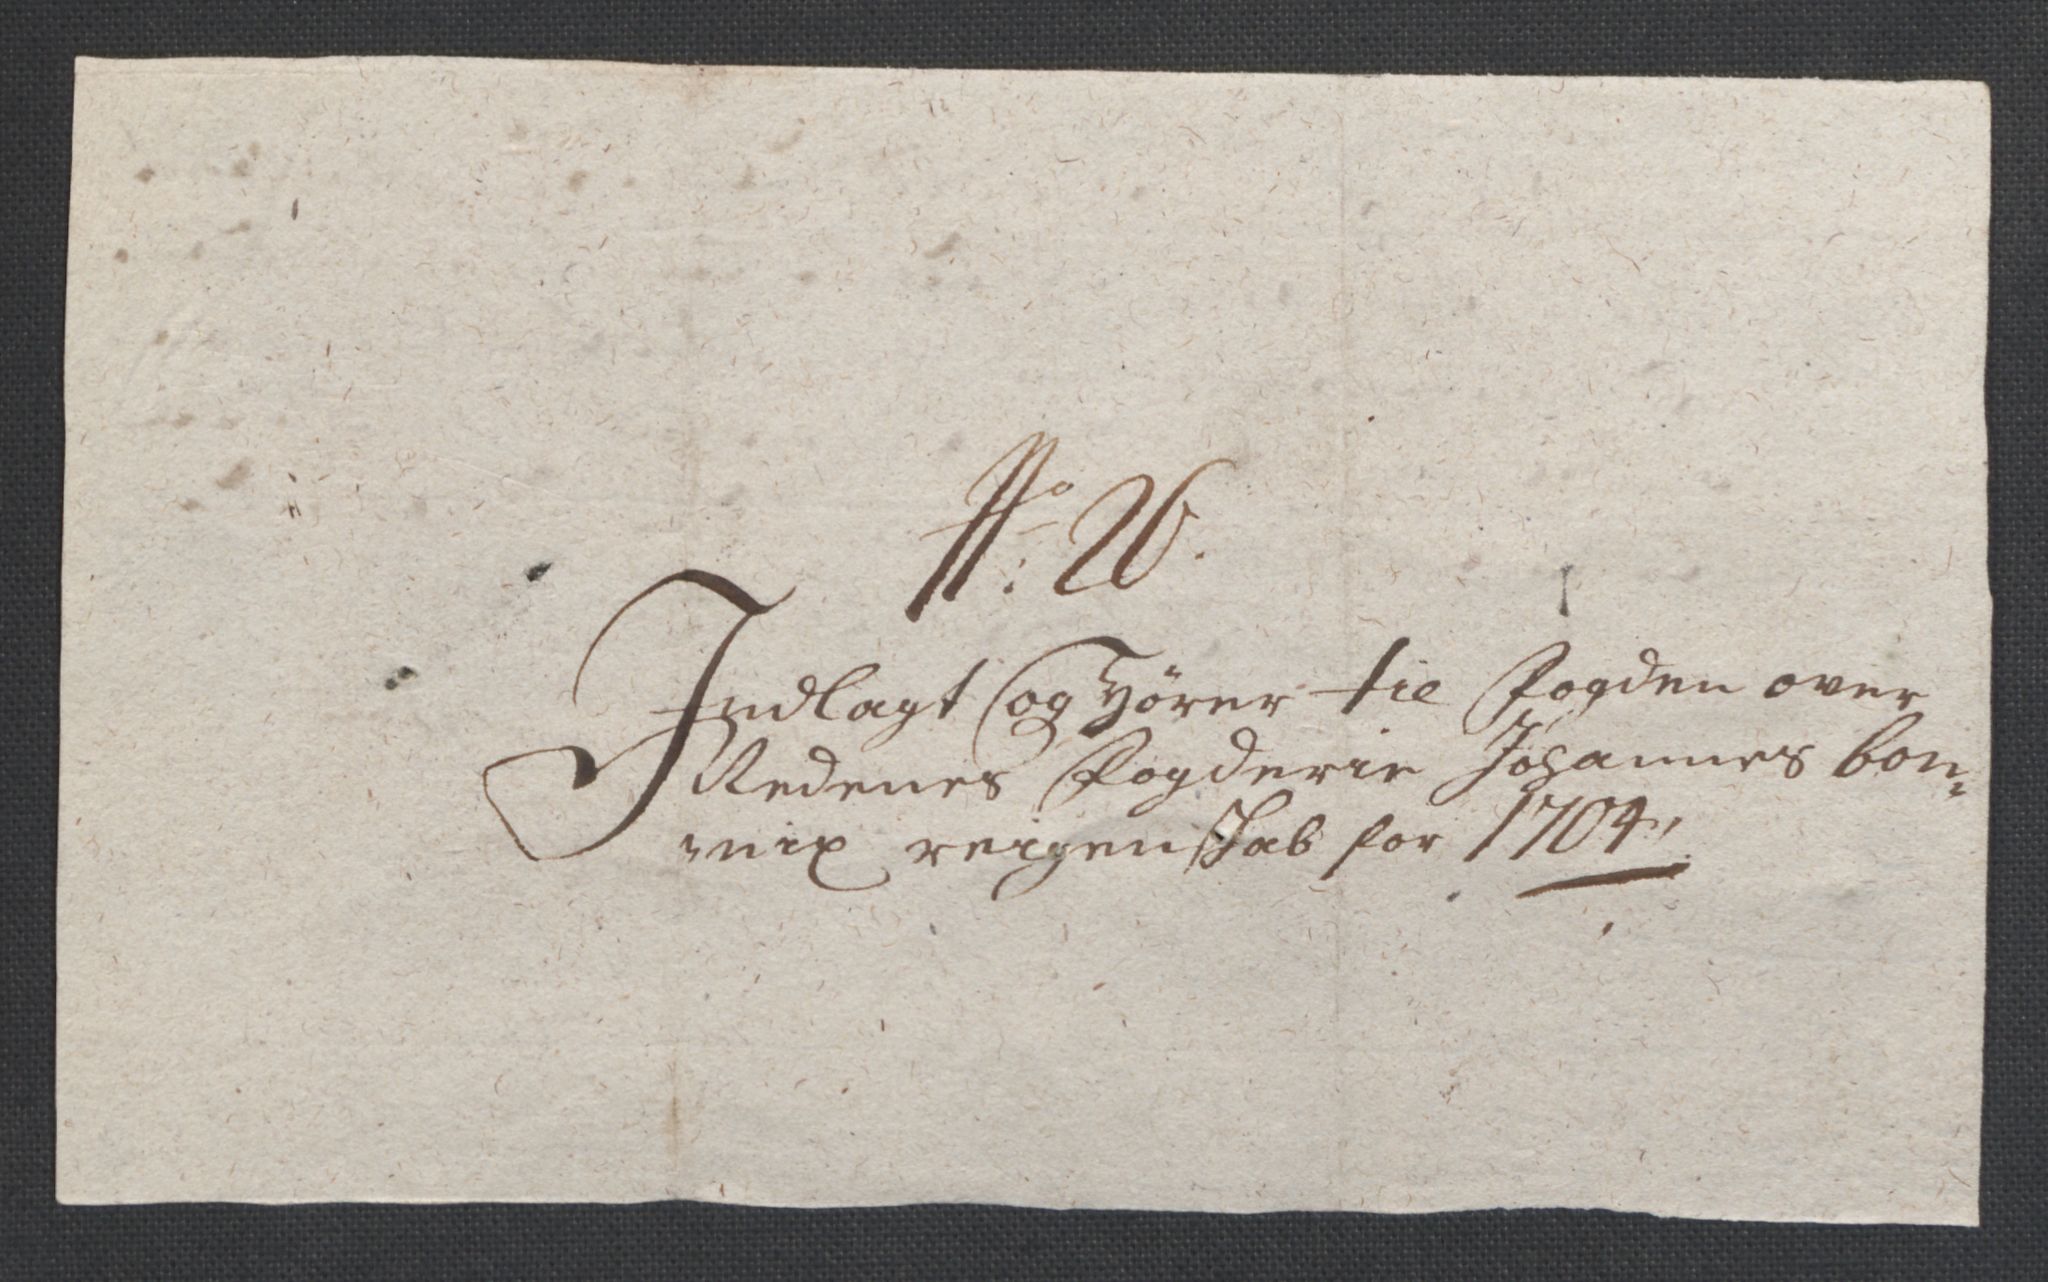 No: 26.
Indlagt og Hörer til Fogden over
Nedenes Fogderie Johannes bon-
nix reigenskab for 1704,